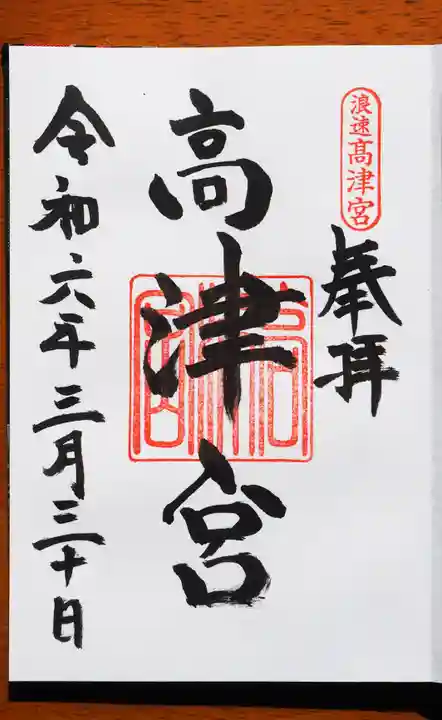 浪速髙津宮
奉拝
高津宮
令和六年三月三十日